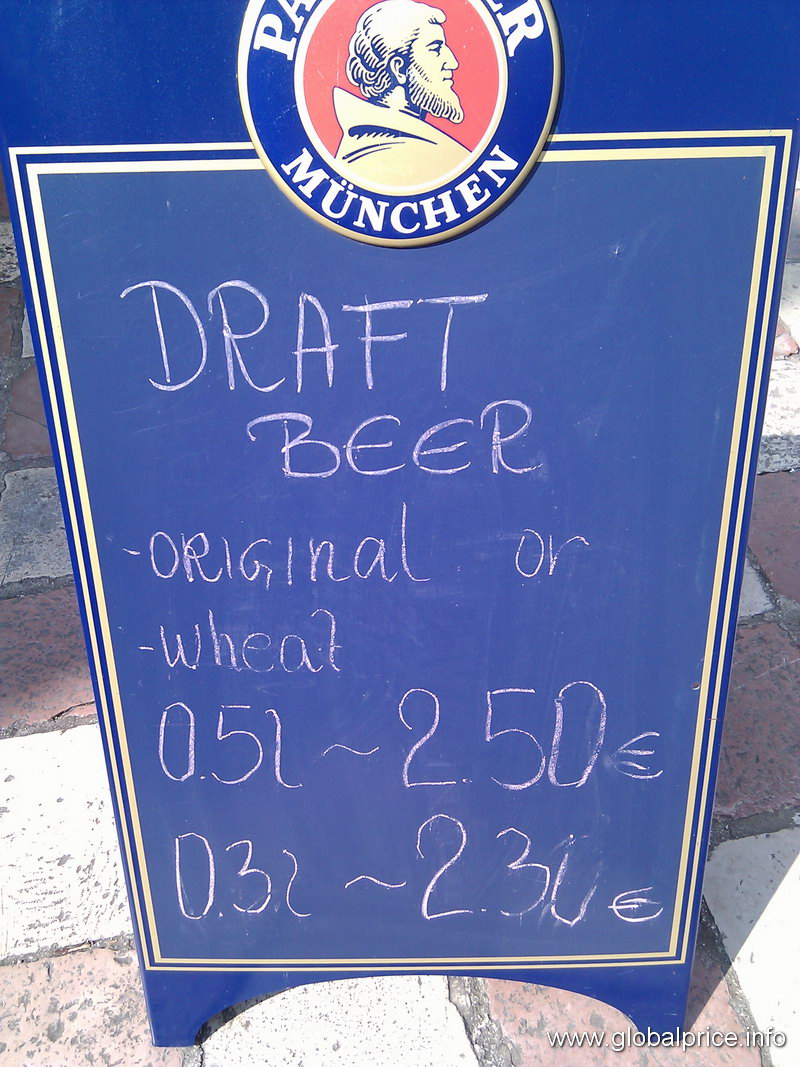 MÜNCHEN
DRAFT
BEER
-ORIGinal or
-wheat
0.5l ~ 2.50€
0.3l ~ 2.30€
www.globalprice.info